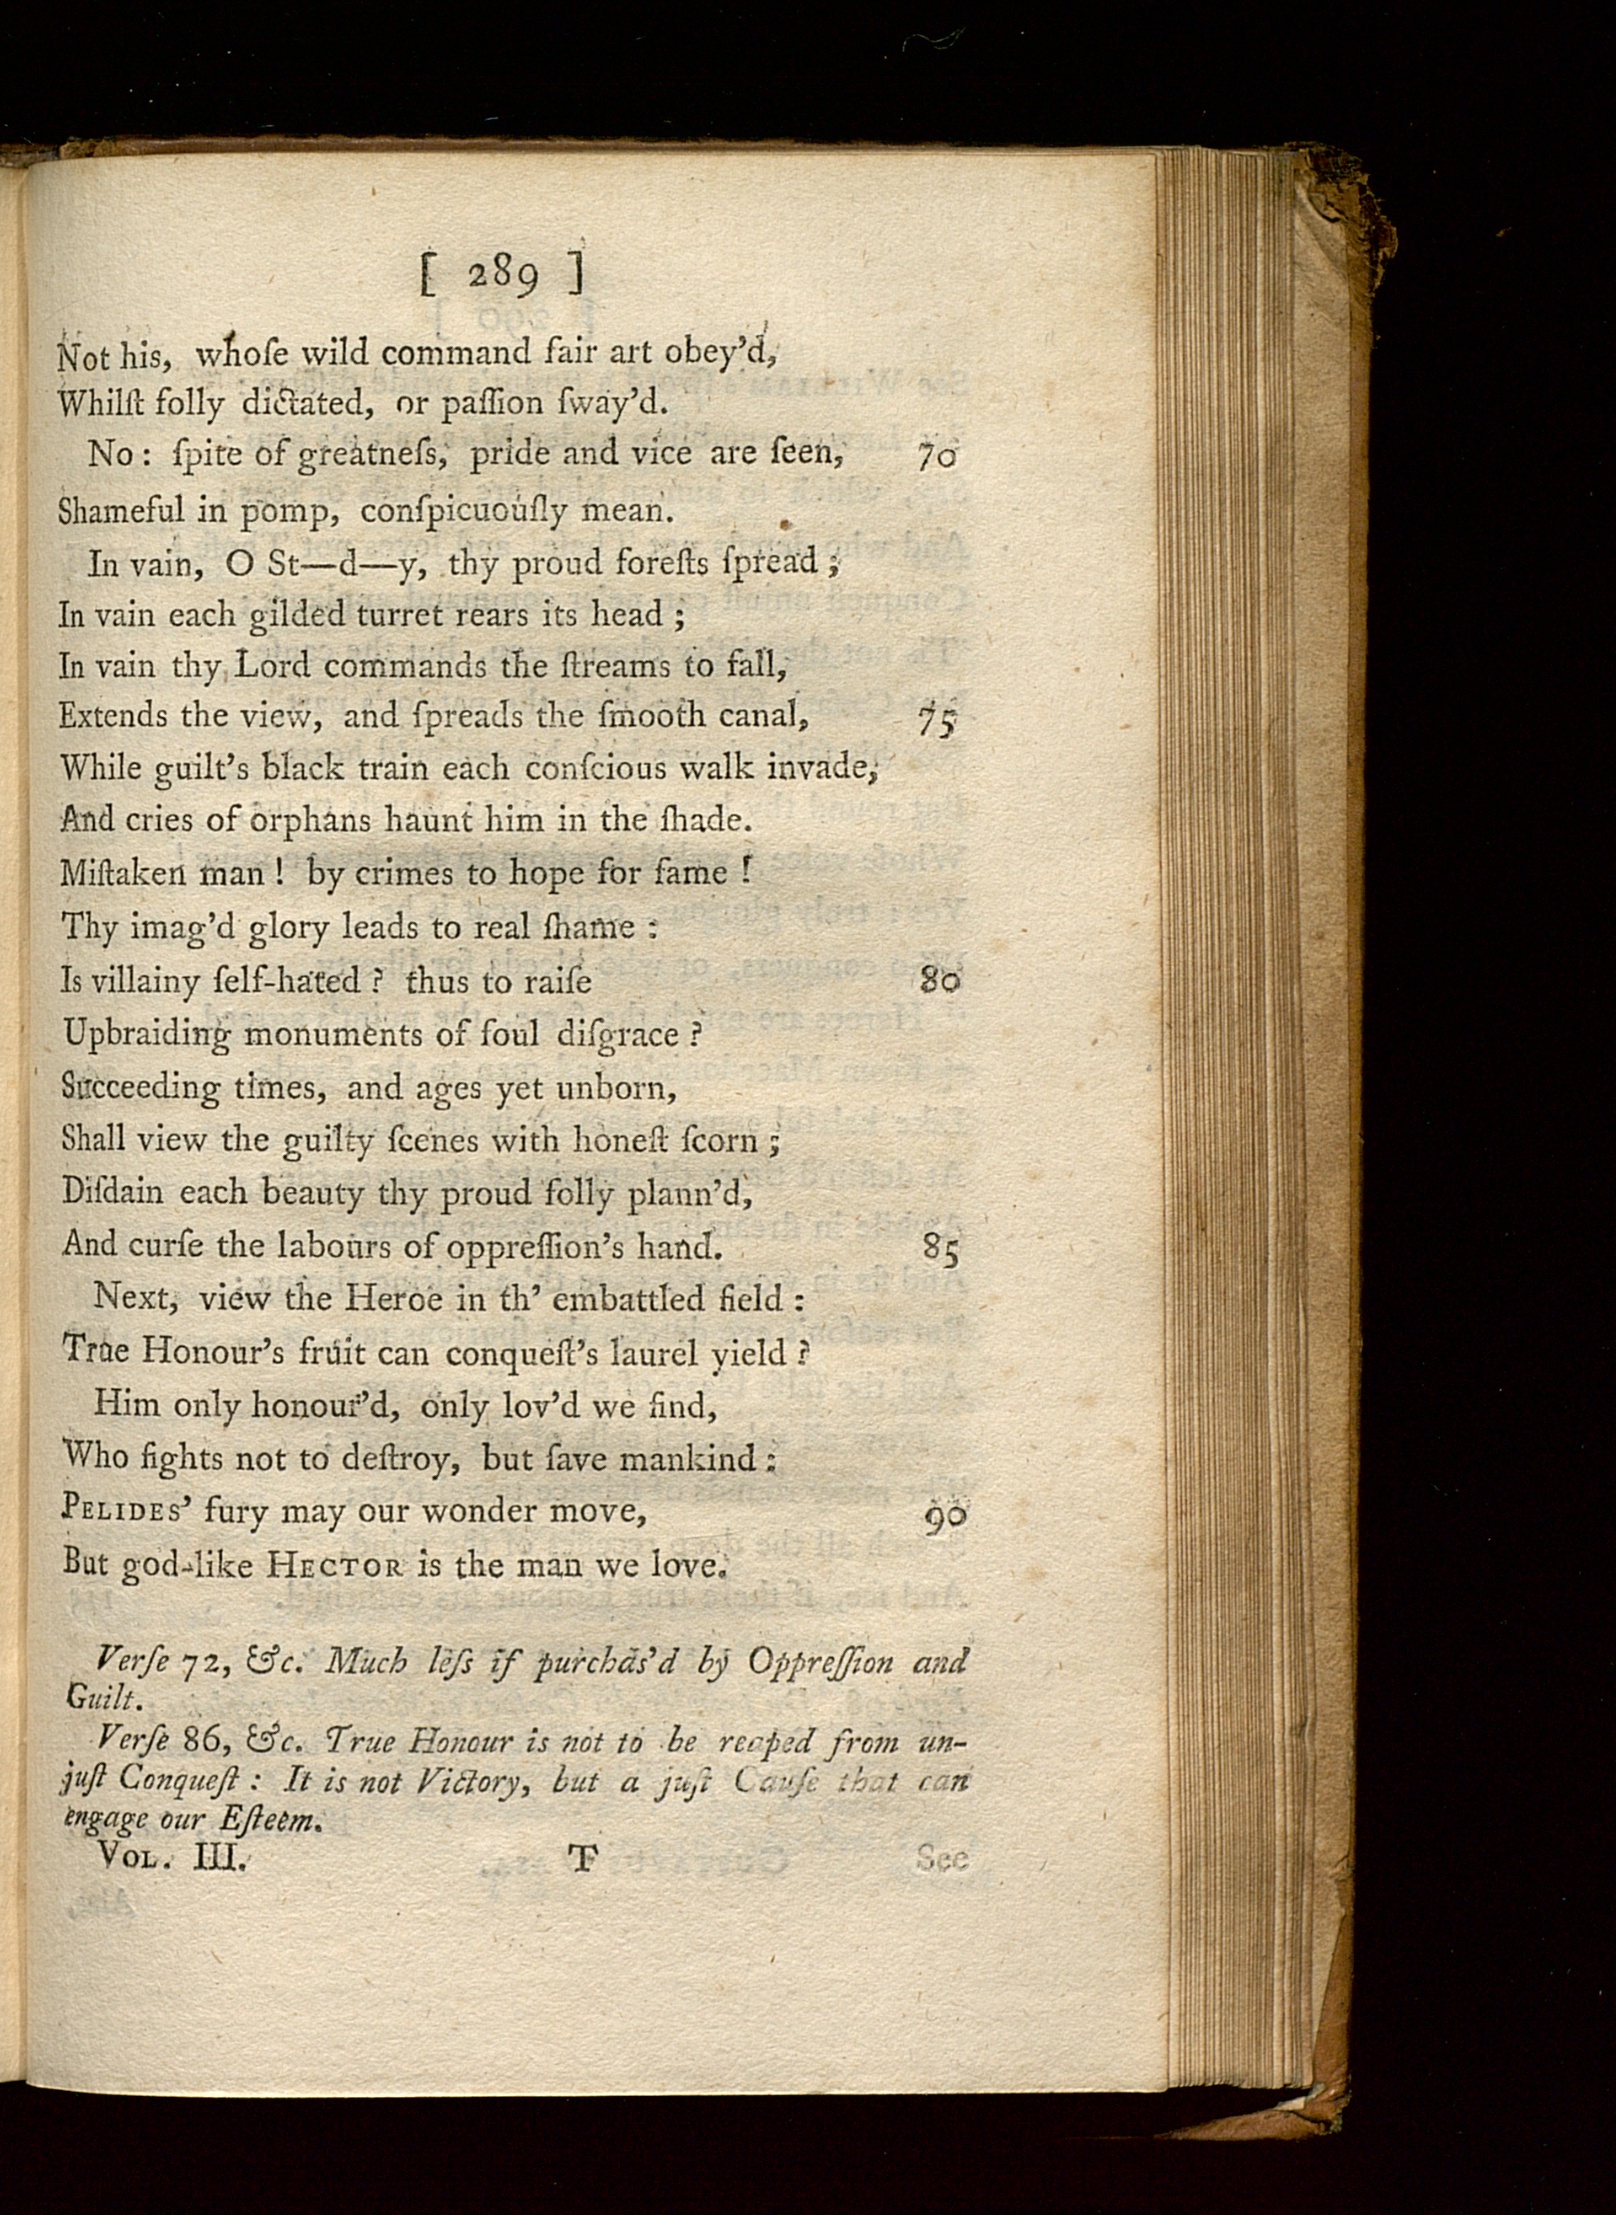 [ 289 ]
Not his, whoſe wild command fair art obey'd,
Whilſt folly dictated, or paſſion ſway'd.
No: ſpite of greatneſs, pride and vice are ſeen, 70
Shameful in pomp, conſpicuouſly mean.
In vain, O St—d—y, thy proud foreſts ſpread;
In vain each gilded turret rears its head;
In vain thy Lord commands the ſtreams to fall,
Extends the view, and ſpreads the ſmooth canal, 75
While guilt's black train each conſcious walk invade,
And cries of orphans haunt him in the ſhade.
Miſtaken man! by crimes to hope for fame!
Thy imag'd glory leads to real ſhame:
Is villainy ſelf-hated? thus to raiſe 80
Upbraiding monuments of foul diſgrace?
Succeeding times, and ages yet unborn,
Shall view the guilty ſcenes with honeſt ſcorn;
Diſdain each beauty thy proud folly plann'd,
And curſe the labours of oppreſſion's hand. 85
Next, view the Heroe in th' embattled field:
True Honour's fruit can conqueſt's laurel yield?
Him only honour'd, only lov'd we find,
Who fights not to deſtroy, but ſave mankind:
PELIDES' fury may our wonder move, 90
But god-like HECTOR is the man we love.
Verſe 72, &c. Much leſs if purchas'd by Oppreſſion and
Guilt.
Verſe 86, &c. True Honour is not to be reaped from un-
juſt Conqueſt: It is not Victory, but a juſt Cauſe that can
engage our Eſteem.
VOL. III. T See